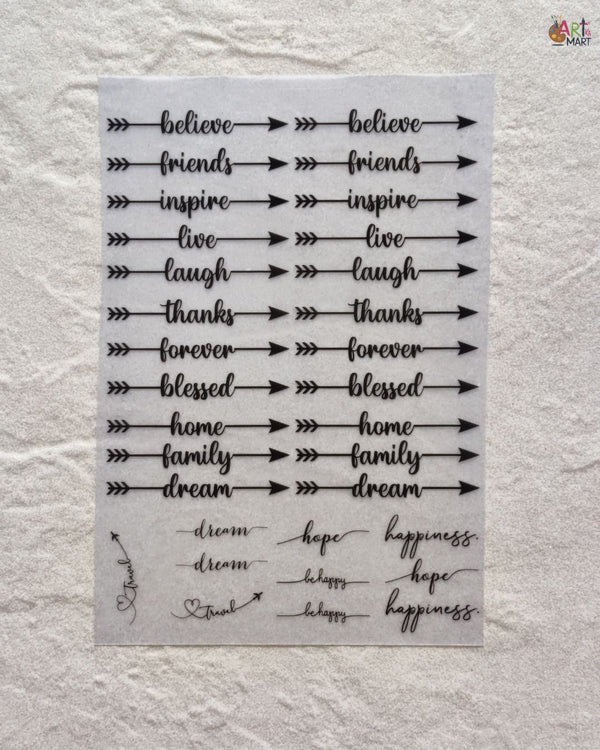 ART
MART
believe believe
friends friends
inspire inspire
live live
laugh laugh
thanks thanks
forever forever
blessed blessed
home home
family family
dream dream
dream hope happiness.
dream be happy hope
travel travel be happy happiness.